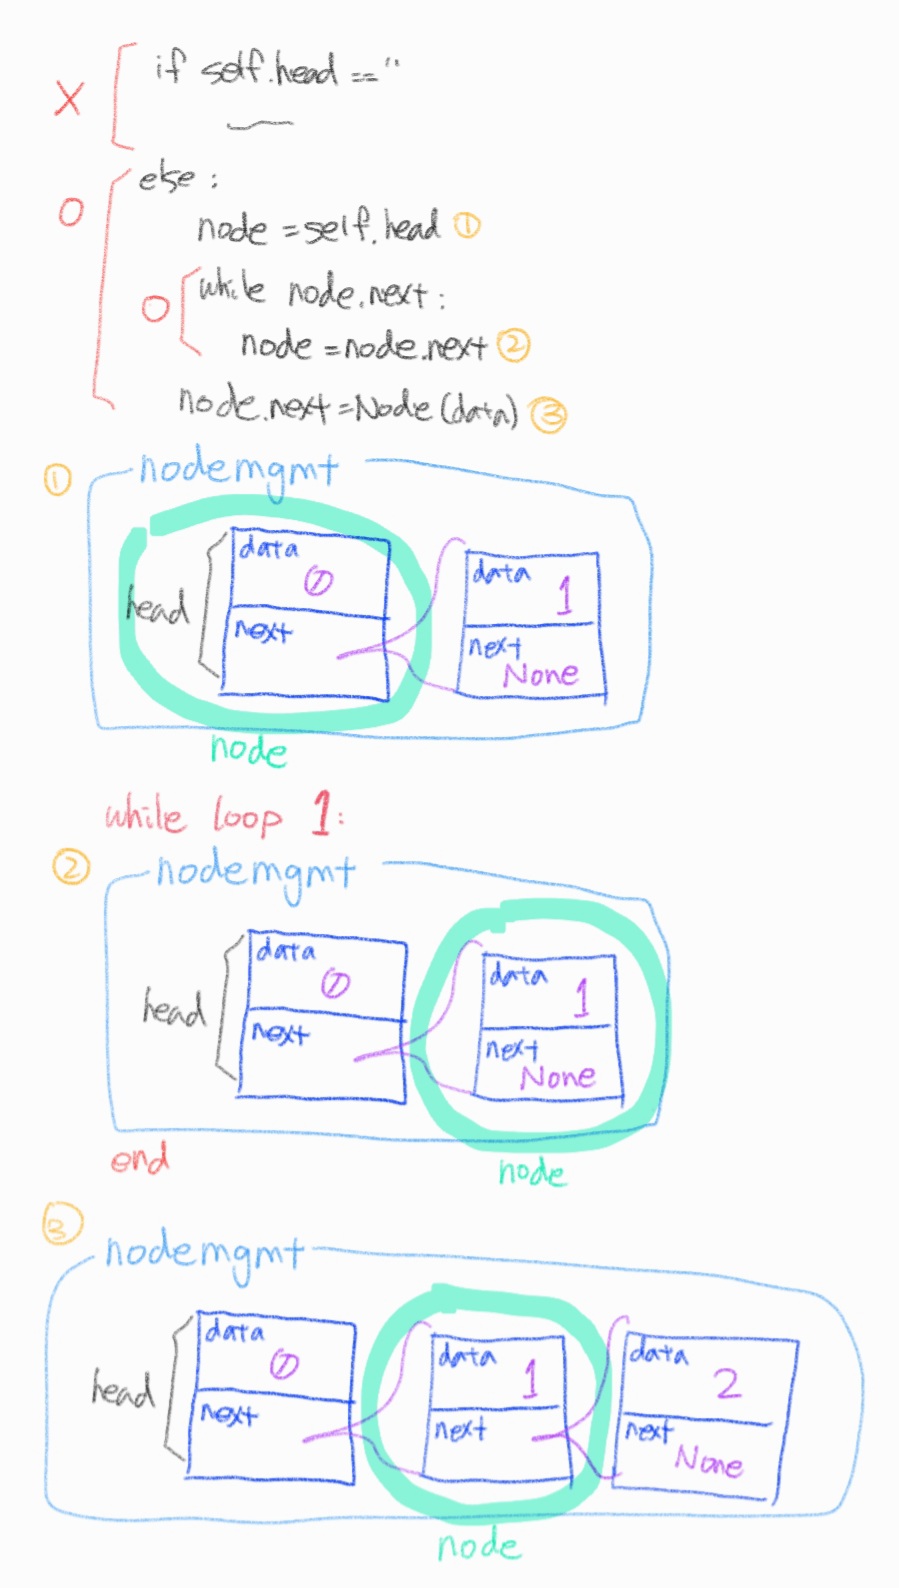 if self.head == ''
X
else :
O
node = self.head ①
while node.next :
O
node = node.next ②
node.next = Node(data) ③
① nodemgmt
data
0
head
next
data
1
next
None
node
while loop 1:
② nodemgmt
data
0
head
next
data
1
next
None
end
node
③
nodemgmt
data
0
head
next
data
1
next
data
2
next
None
node